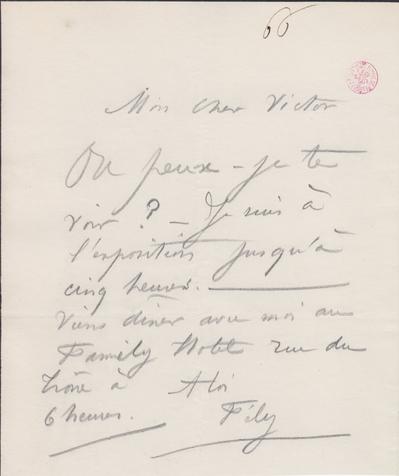 66
Mon cher Victor
Où peux-je te
voir ? — Je suis à
l'exposition jusqu'à
cinq heures.
Viens diner avec moi au
Family Hotel rue du
Trône à
6 heures. A toi
Fély